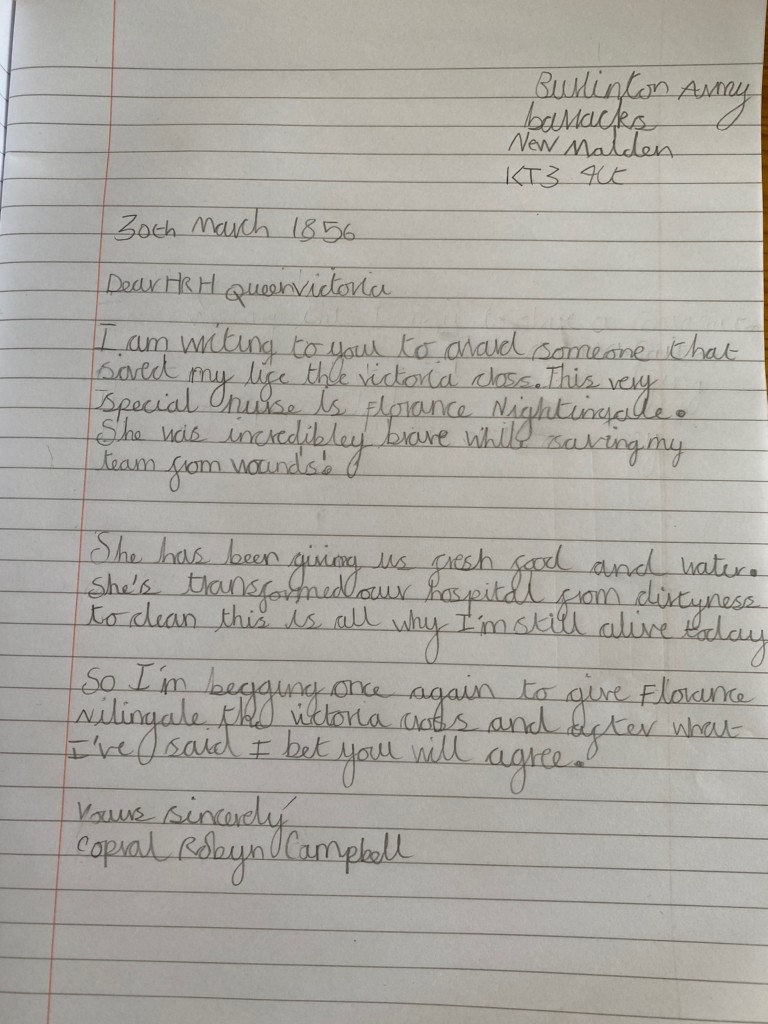 Burlinton Army
barracks
New Malden
KT3 4LT
30th March 1856
Dear HRH Queen victoria
I am writing to you to award someone that
saved my life the victoria cross. This very
special nurse is Florance Nightingale.
She was incredibley brave while saving my
team from wounds!
She has been giving us fresh food and water.
She's transformed our hospital from dirtyness
to clean this is all why I'm still alive today
So I'm begging once again to give Florance
Nilingale the victoria cross and after what
I've said I bet you will agree.
Yours sincerely
Copral Robyn Campbell